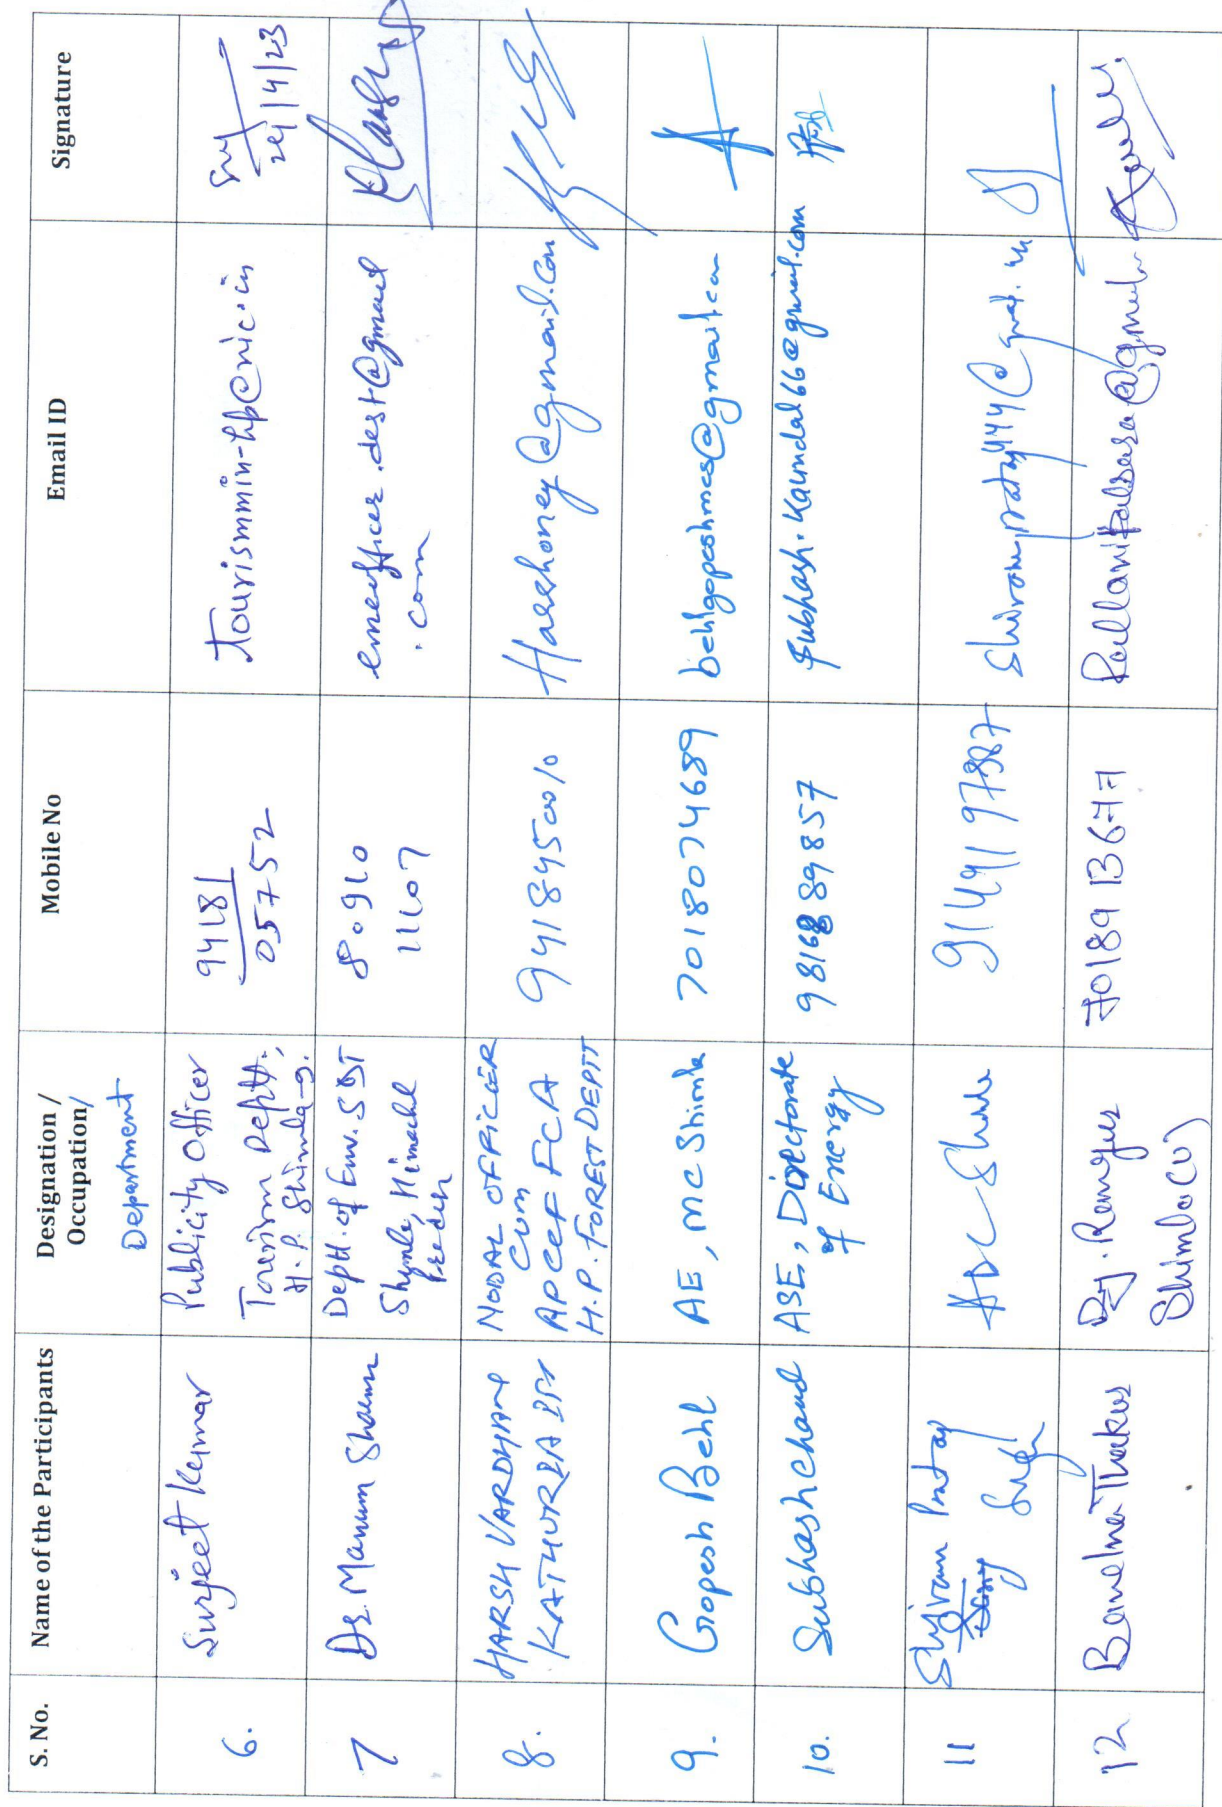 S. No.
Name of the Participants
Designation /
Occupation/
Department
Mobile No
Email ID
Signature
6.
Surjeet Kumar
Publicity Officer
Tourism Deptt.,
H.P. Shimla-9.
94181
05752
tourismmin-hp@nic.in
24/4/23
7
Dr. Manum Sharma
Deptt. of Env. S&T
Shimla, Himachal
Pradesh
80910
11107
emeofficer.dest@gmail
.com
8.
HARSH VARDHAN
KATHURIA IFS
NODAL OFFICER
CUM
APCCF FCA
H.P. FOREST DEPTT
9418450010
Harshoney@gmail.com
9.
Gopesh Behl
AE, MC Shimla
7018074689
behlgopeshmcs@gmail.com
10.
Subhash Chand
ASE, Directorate
of Energy
9816889857
Subhash.Kaundal66@gmail.com
11
Shivam Pratap
Singh
ADC Shimla
12
Thakur
Dy. Ranger
Shimla (U)
7018913677